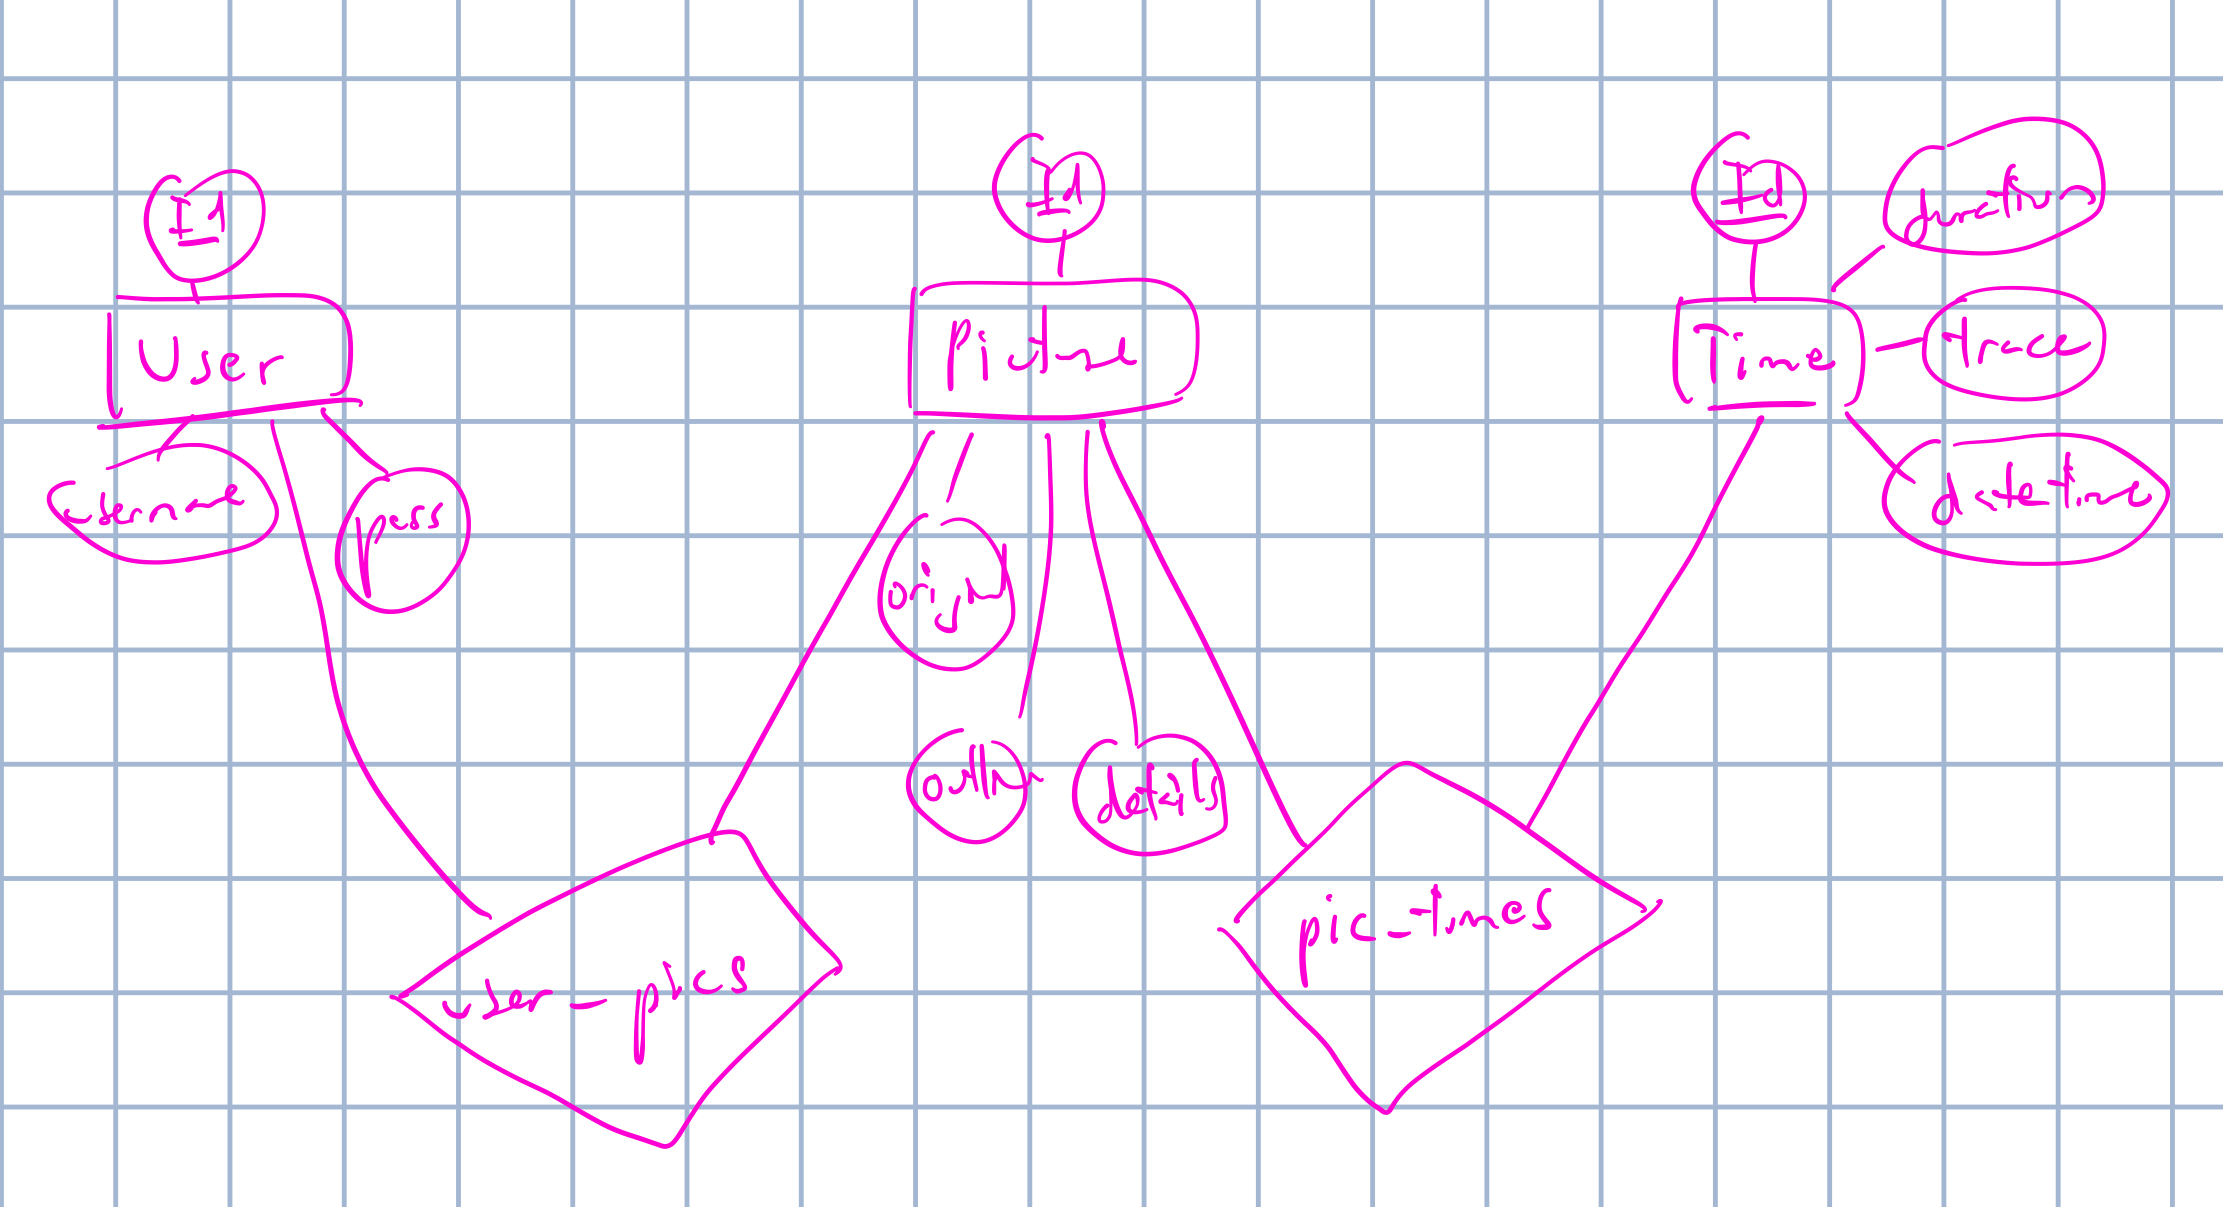 Id
User
username
pass
Id
Picture
original
outline
details
Id
Time
duration
trace
datetime
user_pics
pic_times